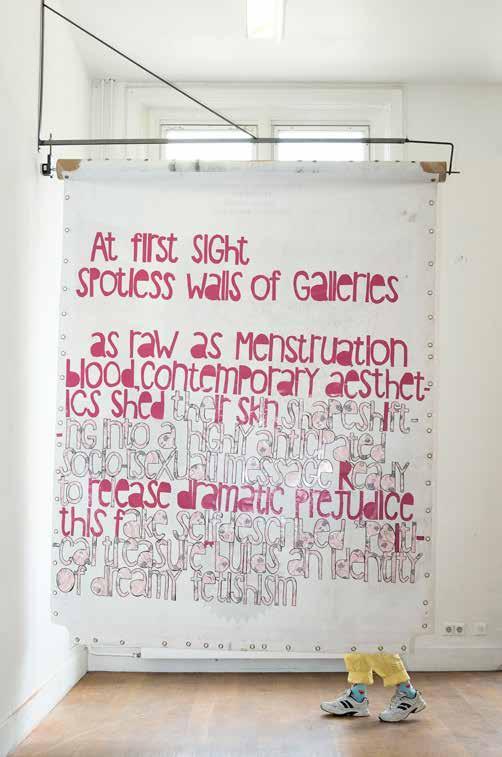 At first sight
spotless walls of Galleries
as raw as Menstruation
blood, contemporary aesthet-
ics shed their skin shapeshift-
-ing into a highly anticipated
socio-sexual message Ready
to release dramatic Prejudice
this fake self described "Politi-
cal treasure" builds an identity
of dreamy fetishism